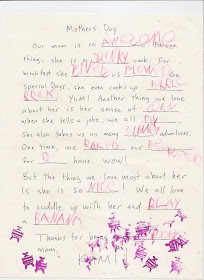 Mothers Day
Our mom is so AWESOME. For one
thing, she is a FUNKY cook. For
breakfast she us FLOWERS. On
special Days, she even cooks up
Yum! Another thing we
love about her is her sense of
when she tells a joke, we all
She also takes us on many FUNNY adventures.
One time, we BAKED our
for 0 hours. Wow!
But the thing we love most about her
is she is so NICE! We all love
to cuddle up with her and PLAY
a BANANA.
Thanks for being
mom!